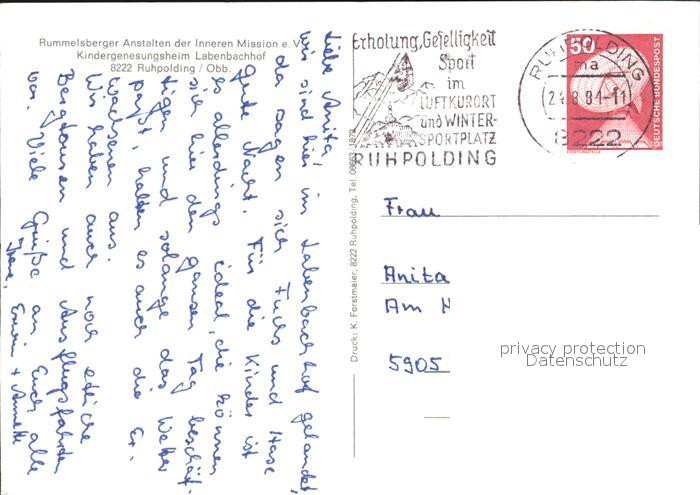 Rummelsberger Anstalten der Inneren Mission e. V.
Kindergenesungsheim Labenbachhof
8222 Ruhpolding / Obb.
Liebe Anita,
wir sind hier im Labenbachhof gelandet,
da sagen sich Fuchs und Hase
Gute Nacht. Für die Kinder ist
es allerdings ideal, die können
sich hier den ganzen Tag beschäf-
tigen und solange das Wetter
paßt, halten es auch die Er-
wachsenen aus.
Wir haben auch noch etliche
Bergtouren und Ausflugsfahrten
vor. Viele Grüße an Euch alle
Irene, Erwin + Annette
Druck: K. Forstmaier, 8222 Ruhpolding, Tel. 08663/1872
Erholung, Geselligkeit
Sport
im
LUFTKURORT
und WINTER-
SPORTPLATZ
RUHPOLDING
RUHPOLDING
ma
8.81-11
8222
50
DEUTSCHE BUNDESPOST
Frau
Anita
Am H
5905
privacy protection
Datenschutz